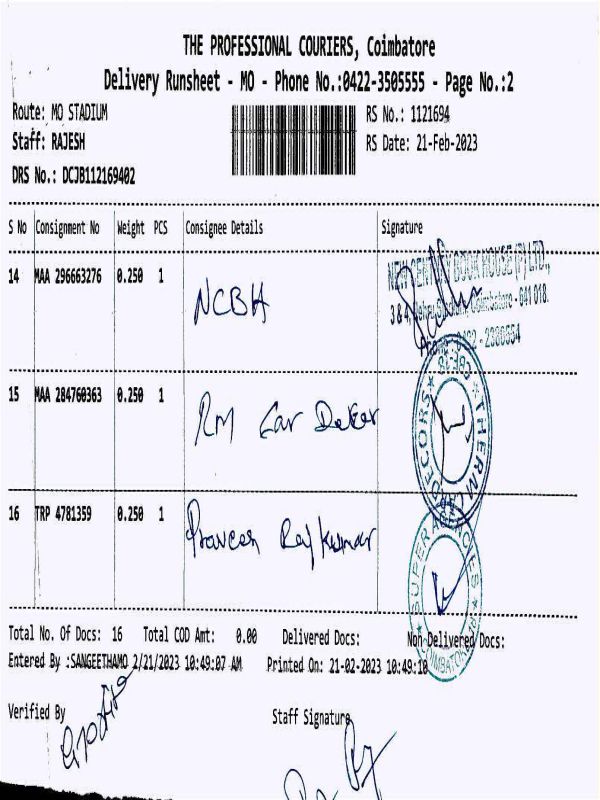 THE PROFESSIONAL COURIERS, Coimbatore
Delivery Runsheet - MO - Phone No.:0422-3505555 - Page No.:2
Route: MO STADIUM
RS No.: 1121694
Staff: RAJESH
RS Date: 21-Feb-2023
DRS No.: DCJB112169402
S No Consignment No Weight PCS Consignee Details Signature
NEW CENTURY BOOK HOUSE (P) LTD.,
14 MAA 296663276 0.250 1 NCBH
Coimbatore - 641 018.
0422 - 2380554
15 MAA 284760363 0.250 1 RM Car Decor
THERM DECORS CBE-18
16 TRP 4781359 0.250 1 Praveen Rajkumar
SUPER
COIMBATORE
Total No. Of Docs: 16 Total COD Amt: 0.00 Delivered Docs: Non-Delivered Docs:
Entered By :SANGEETHAMO 2/21/2023 10:49:07 AM Printed On: 21-02-2023 10:49:10
Verified By Staff Signature